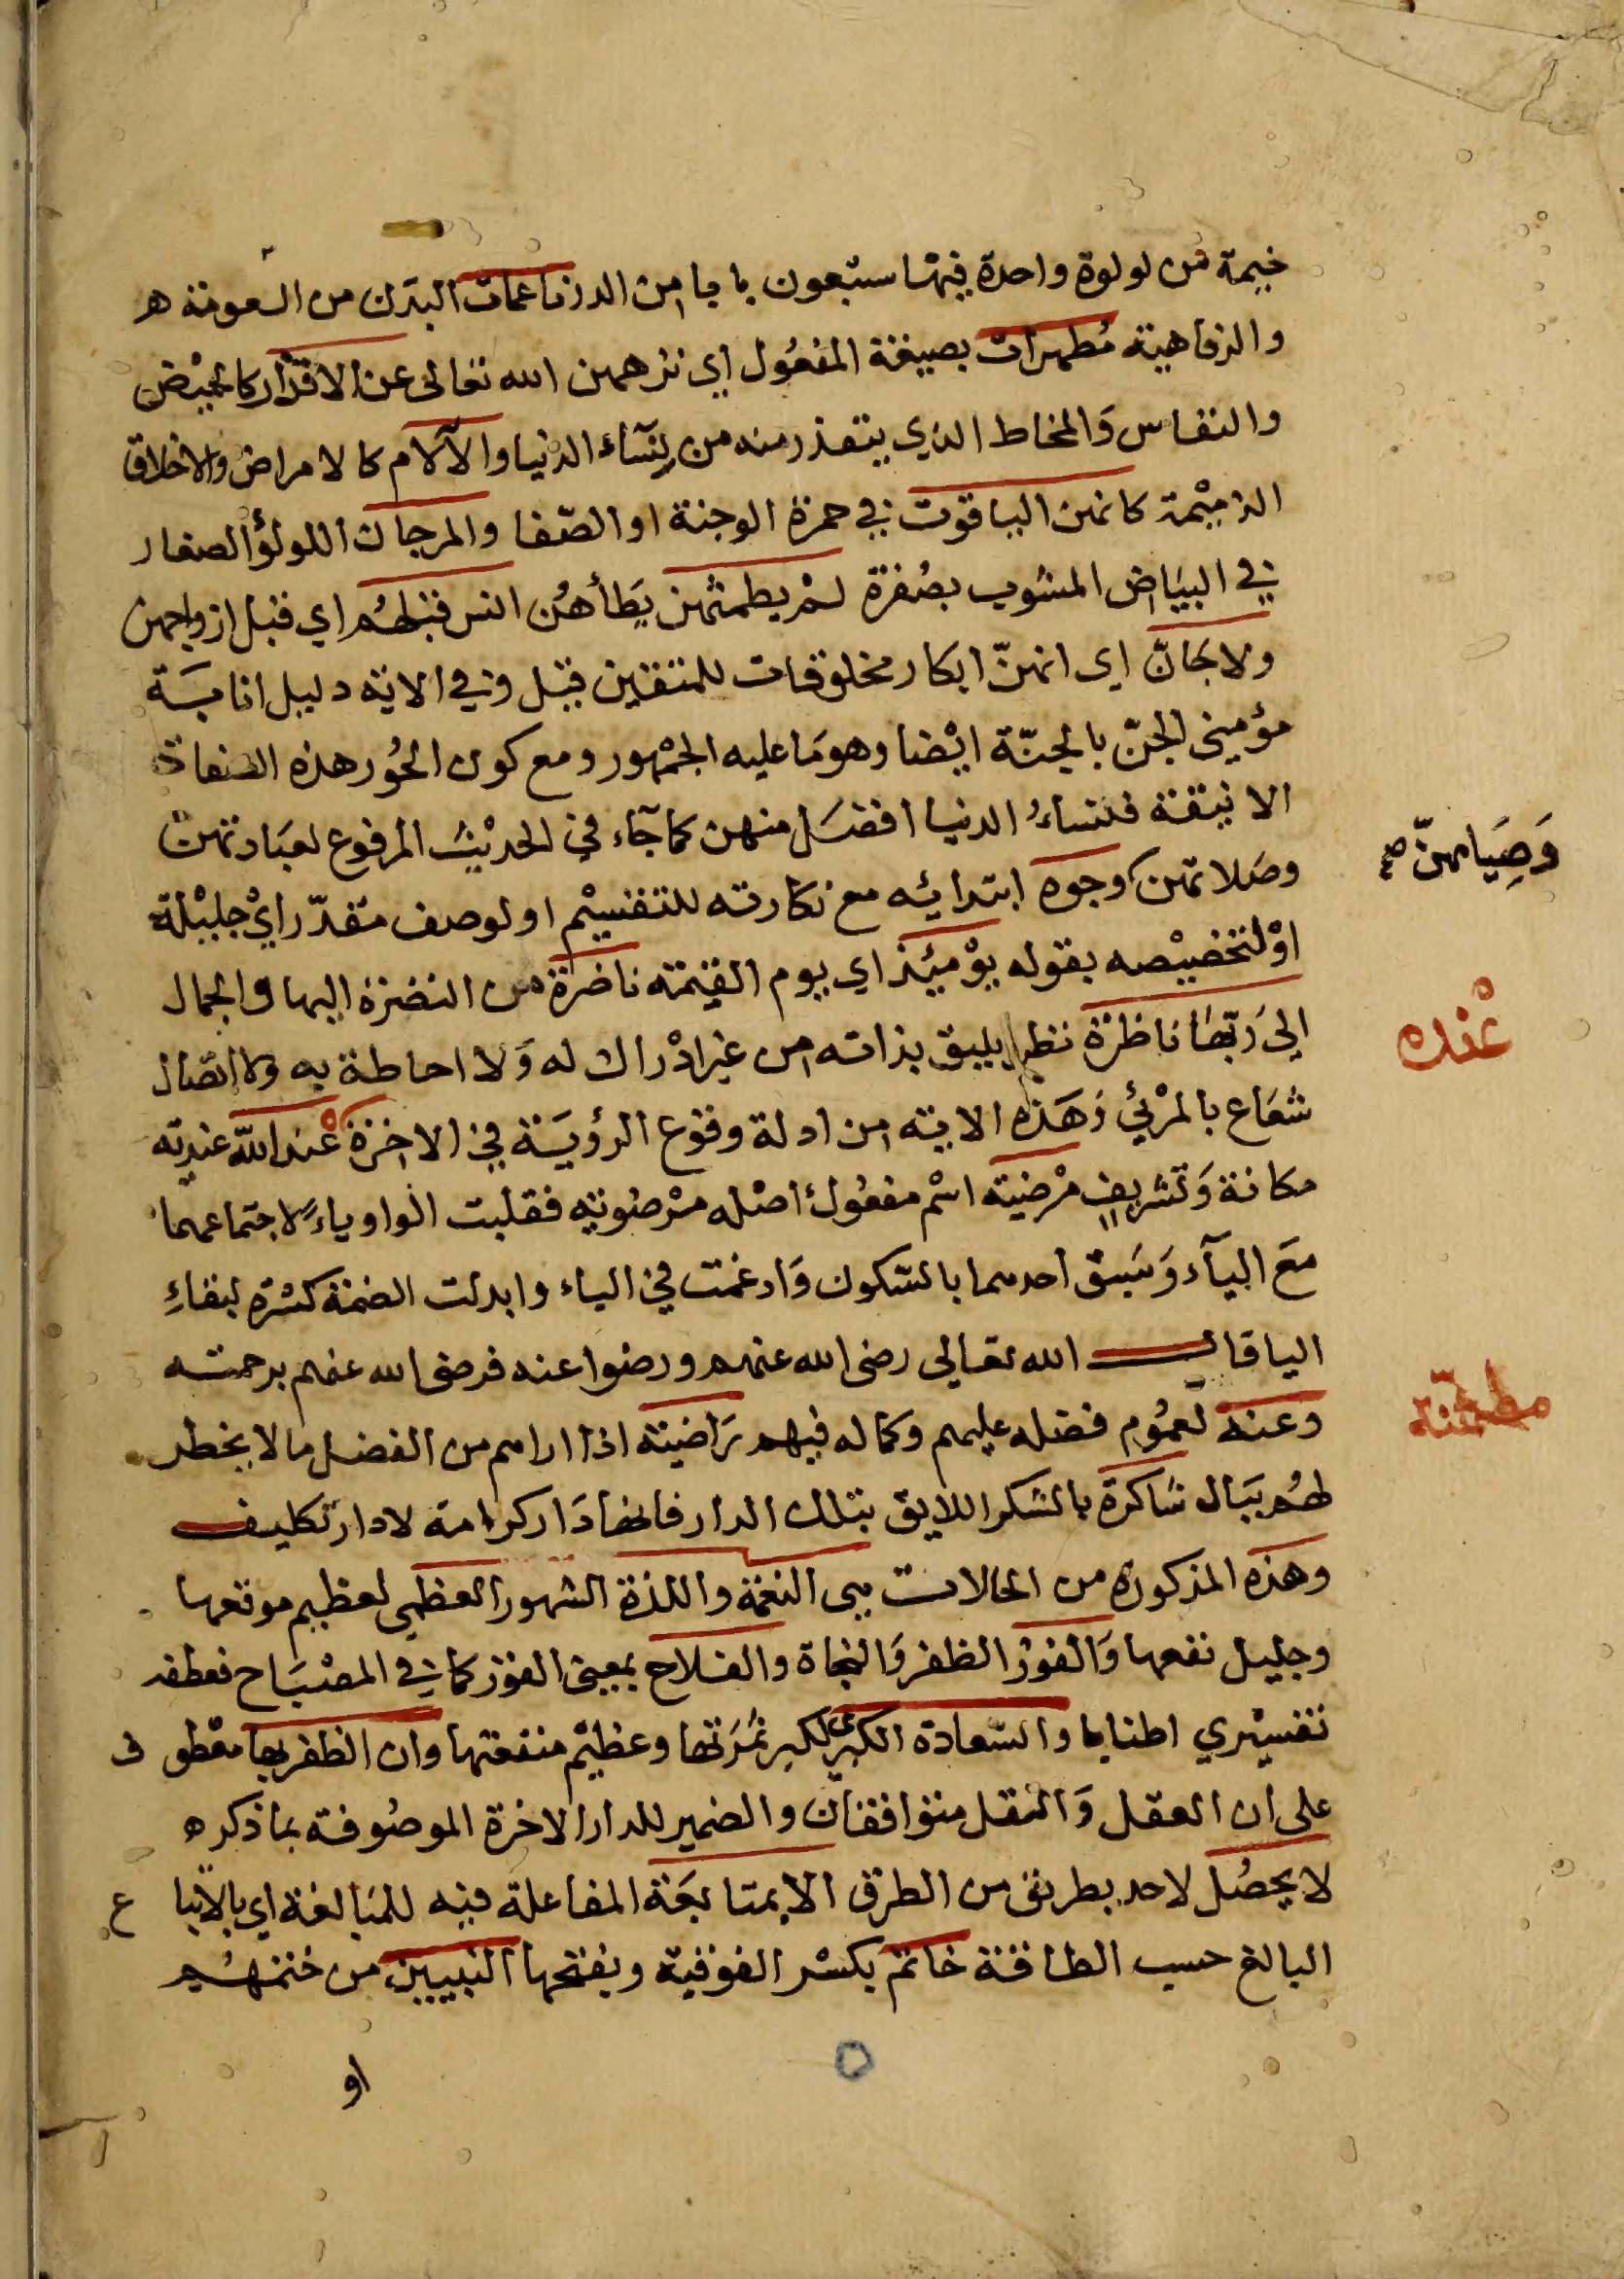 خيمة من لولوة واحدة فيها سبعون بابا من الدر ناعمات البدن من النعومة ه
والرفاهية مُطهرات بصيغة المفعُول اي نزههن الله تعالى عن الاقذار كالحيْض
والنفاس وَالمخاط الذي يتقذر منه من نِسَآء الدنيا والآلام كالامراض والاخلاق
الذميْمة كانهن الياقوت في حمرة الوجنة او الصّفا والمرجان اللولؤ الصغار
في البيَاض المشوب بصُفرة لمْ يطمثهن يَطَأهُن انس قبلهُم اي قبل ازواجهن
ولا جَانّ اي انهنّ ابكار مخلوقات للمتقين قبل وفي الاية دليل اثابَة
مؤمِني الجنّ بالجنّة ايْضا وهو مَا عليه الجمْهور ومع كون الحُور هذه الصفات
الانيقة فنسَاءُ الدنيا افضَل منهن كما جَآء في الحديْث المرفوع لعبَادتهن
وصَلاتهن وجوه ابتدائيه مع نكارته للتقسيْم او لوصف مقدّر ايْ جليْلة
وَصِيَامهنّ صح
اوْ لتخصيْصه بقوله يوْمئِذ اي يوم القيٰمة ناضرة من النضرة البها والجمال
الى رَبّهَا ناظرَة نظرا يليق بذاته من غير ادْراك له وَلا احاطة به ولا اتصَال
عنْده
شعَاع بالمرْئي وَهَذه الاية من ادلة وقوع الرؤيَة في الاخرة عنْد الله عندية
مكانة وَتشريف مرْضية اسْم مفعُول اصْله مرْضُوية فقلبت الواو ياءً لاجتماعهما
مَع اليآء وَسَبق احدهما بالسّكون وَادغمت في الياء وابدلت الضمة كسْرة لبقاءِ
اليا قال الله تعالى رضى الله عنهم ورضوا عنه فرضى الله عنهم برحمته
وعنه لعمُوم فضله عليهم وكماله فيهم رَاضية اذا اراهم من الفضل ما لا يخطر
مطمئنّة
لهُم ببَال شاكرة بالشكر اللايق بتلك الدار فانها دَار كرامة لا دار تكليف
وهذه المذكورة من الحالات هي النعْمة واللذة الشهور العظمى لعظيم موقعها
وجليل نفعها وَالفوْز الظفر وَالنجاة والفلاح بمعنى الفوز كما في المصْبَاح فعطفه
تفسيْري اطنابا والسّعادة الكبرى لكبر ثمَرَتها وعظيْم منفعتها وان الظفر بها معْطوف
على ان العقل وَالنقل متوافقان والضمير للدار الاخرة الموصُوفة بما ذكره
لا يحصُل لاحد بطريق من الطرق الا بمتابعَة المفاعلة فيه للمبَالغة اي بالاتباع
البالغ حسب الطاقة خاتم بكسْر الفوقية وبفتحها النبيين من ختمهُم
او